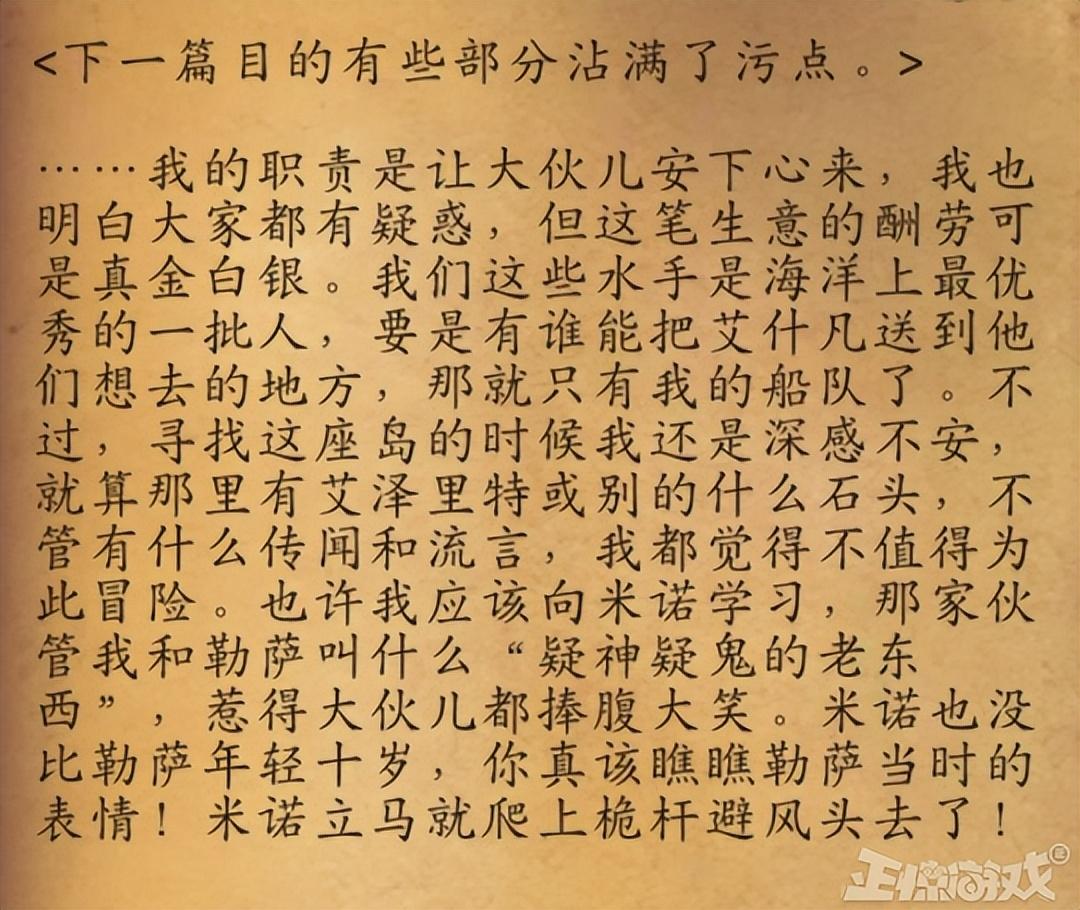 <下一篇目的有些部分沾满了污点。>
……我的职责是让大伙儿安下心来，我也
明白大家都有疑惑，但这笔生意的酬劳可
是真金白银。我们这些水手是海洋上最优
秀的一批人，要是有谁能把艾什凡送到他
们想去的地方，那就只有我的船队了。不
过，寻找这座岛的时候我还是深感不安，
就算那里有艾泽里特或别的什么石头，不
管有什么传闻和流言，我都觉得不值得为
此冒险。也许我应该向米诺学习，那家伙
管我和勒萨叫什么“疑神疑鬼的老东
西”，惹得大伙儿都捧腹大笑。米诺也没
比勒萨年轻十岁，你真该瞧瞧勒萨当时的
表情！米诺立马就爬上桅杆避风头去了！
正惊游戏